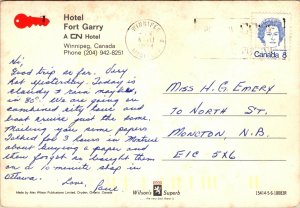 Hotel
Fort Garry
A CN Hotel
Winnipeg, Canada
Phone (204) 942-8251
WINNIPEG
Canada 8
Hi,
Good trip so far. Very
hot yesterday. Today is
cloudy & rain maybe,
80°. We are going on
combined city tour and
boat cruise just the same.
Mailing you some papers
Talked for 3 hours in
about buying a paper and
then forgot so bought them
on a 10 minute stop in
Ottawa.
Love, Paul
MISS H.G. EMERY
70 NORTH ST.
MONCTON, N.B.
E1C 5X6
Made by Alex Wilson Publications Limited, Dryden, Ontario, Canada
Wilson's Superb